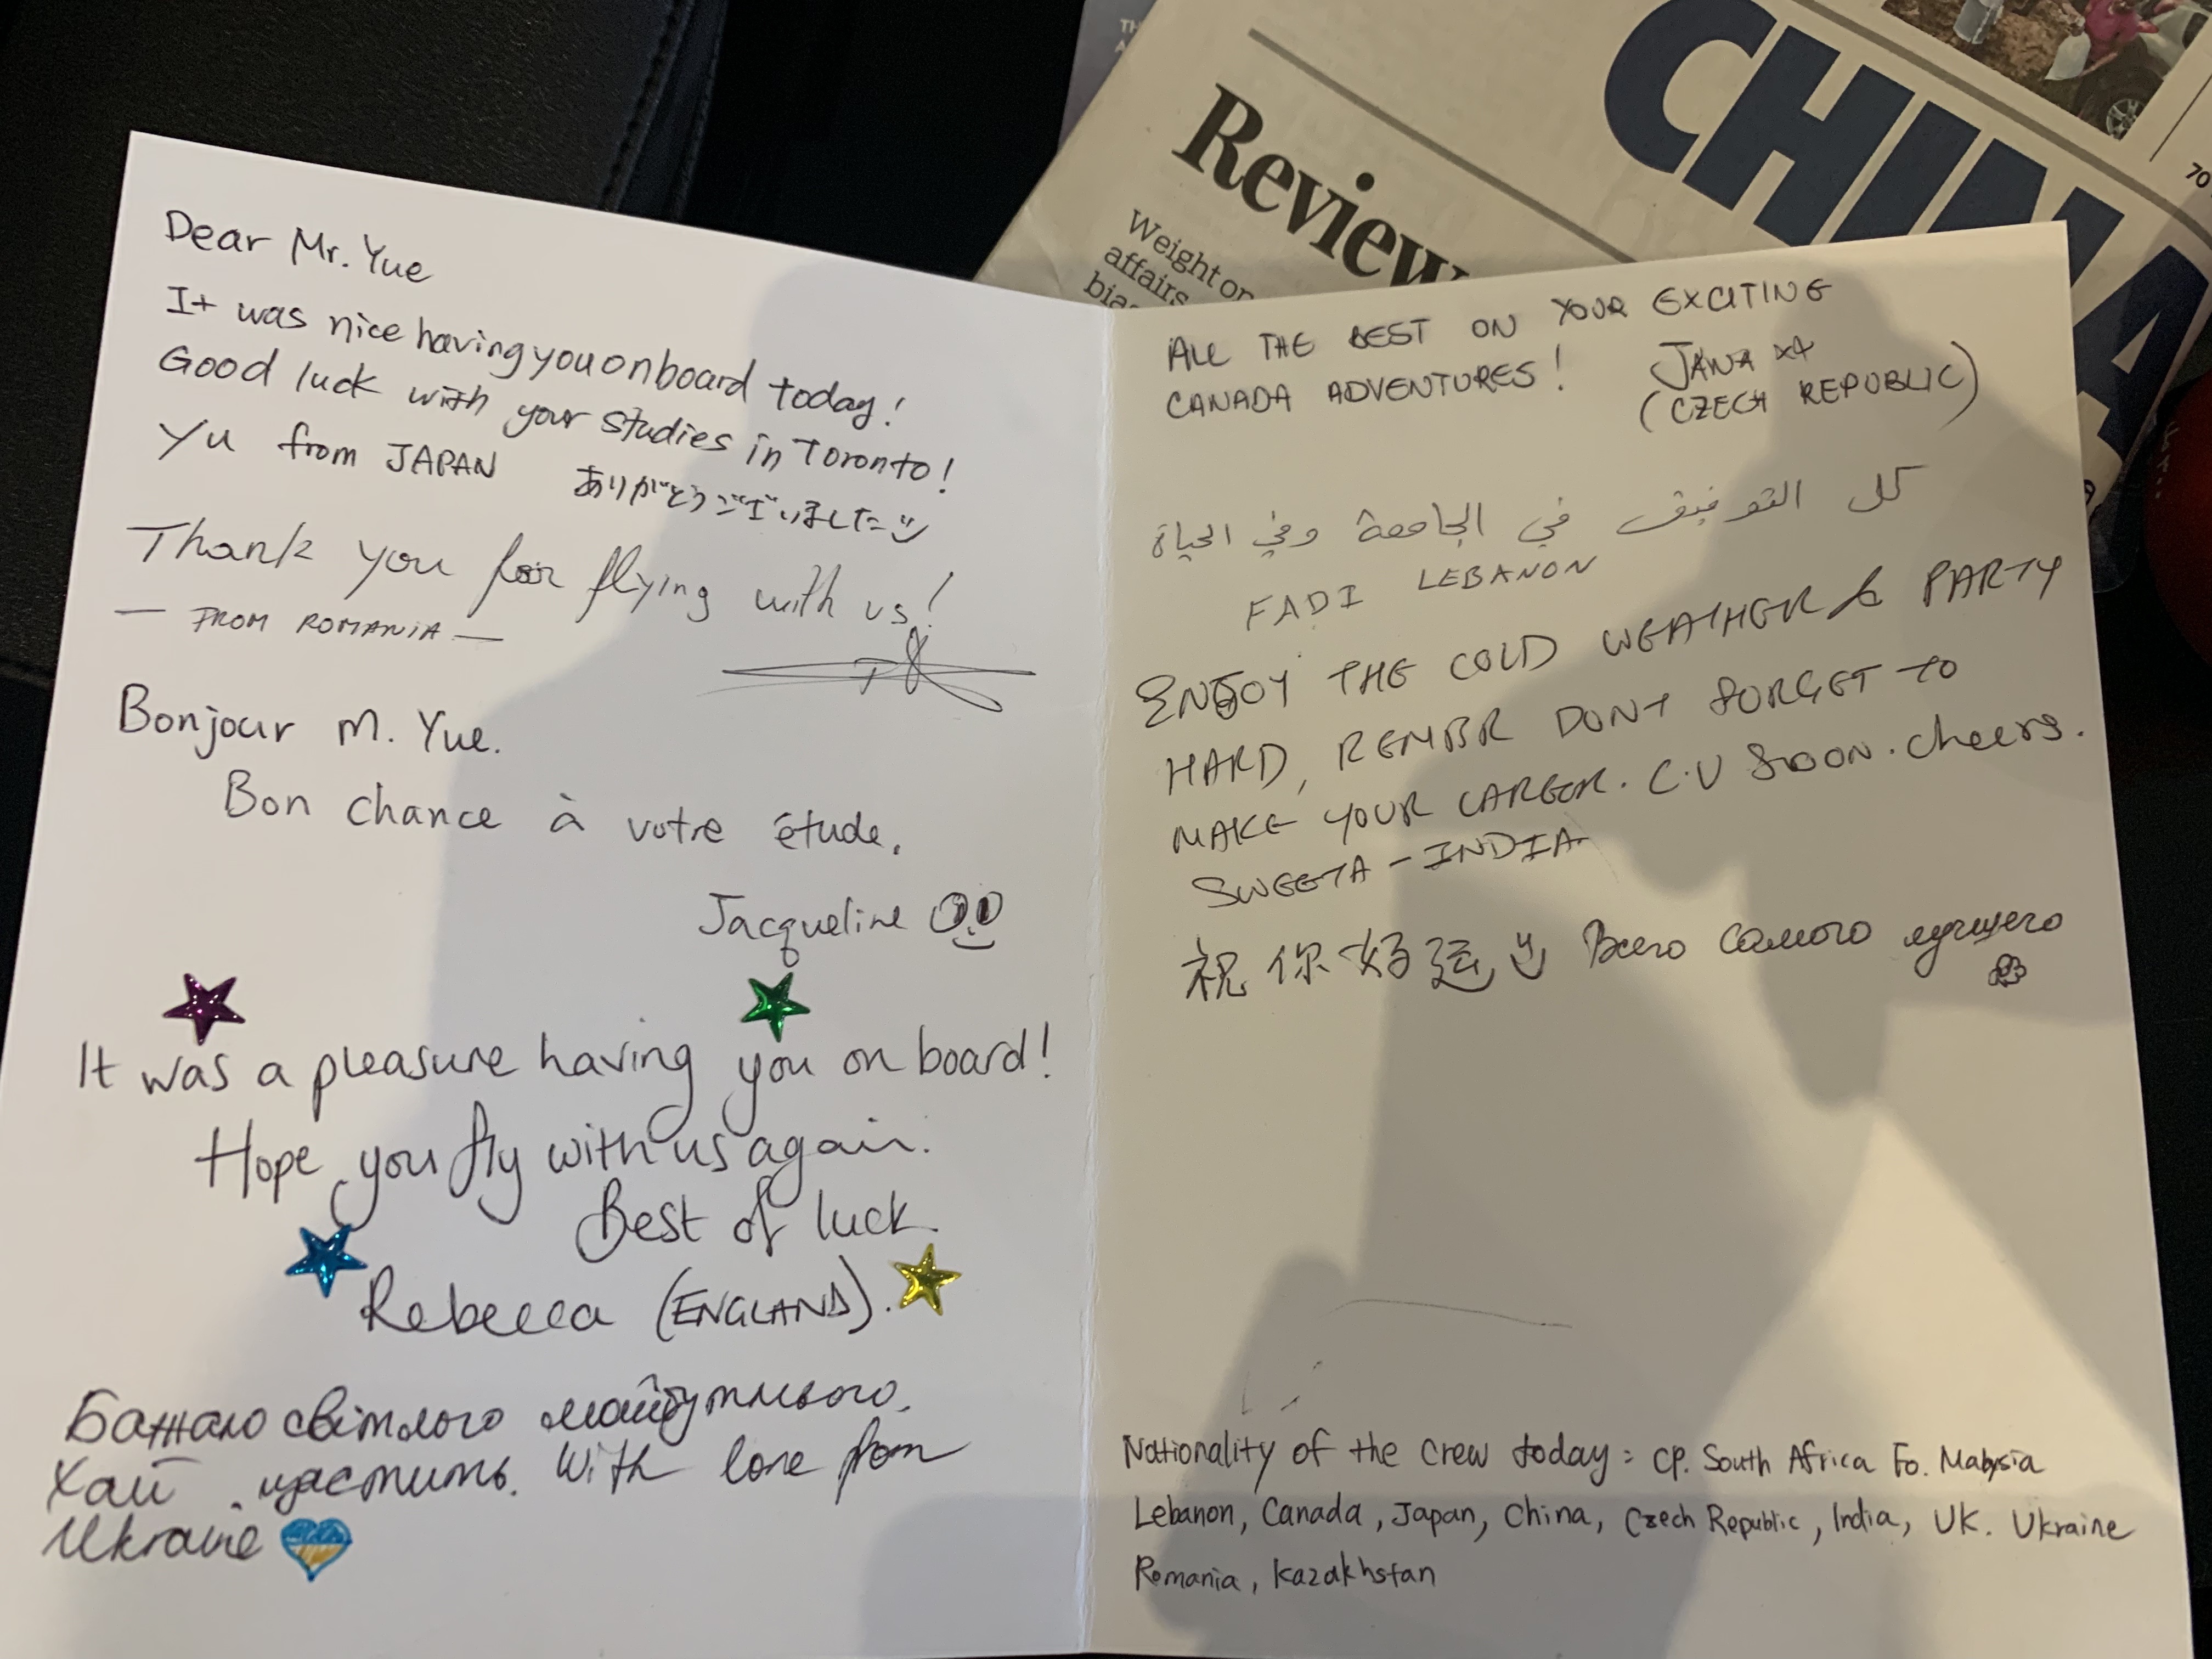 Dear Mr. Yue
It was nice having you on board today!
Good luck with your studies in Toronto!
Yu from JAPAN ありがとうございました
Thank you for flying with us!
— FROM ROMANIA —
Bonjour M. Yue.
Bon chance à votre étude.
Jacqueline
It was a pleasure having you on board!
Hope you fly with us again.
Best of luck.
Rebecca (ENGLAND).
Бажаю світлого майбутнього.
Хай щастить. With love from
Ukraine
ALL THE BEST ON YOUR EXCITING
CANADA ADVENTURES! JANA
(CZECH REPUBLIC)
كل التوفيق في الجامعة وفي الحياة
FADI LEBANON
ENJOY THE COLD WEATHER & PARTY
HARD, REMBR DONT FORGET TO
MAKE YOUR CAREER. C.U SOON. cheers.
SWEETA - INDIA
祝你好运 Всего самого лучшего
Nationality of the crew today: CP. South Africa Fo. Malaysia
Lebanon, Canada, Japan, China, Czech Republic, India, UK. Ukraine
Romania, Kazakhstan
Review
Weight or
affairs
CHINA
70